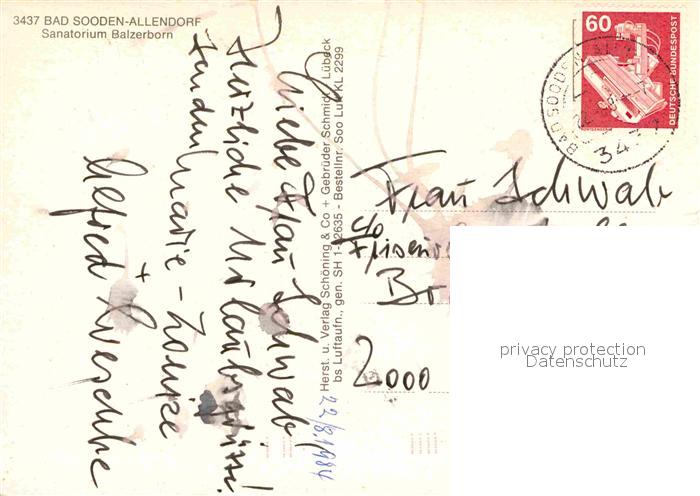 3437 BAD SOODEN-ALLENDORF
Sanatorium Balzerborn
Liebe Frau Schwab!
Herzliche Urlaubsgrüsse!
senden Marie-Louise
+
Alfred
Herst. u. Verlag Schöning & Co + Gebrüder Schmidt, Lübeck
bs Luftaufn., gen. SH 1-32635 - Bestellnr. Soo Luft KL 2299
22/8.1984
60
DEUTSCHE BUNDESPOST
BAD SOODEN
343
Frau Schwab
c/o
2000
privacy protection
Datenschutz